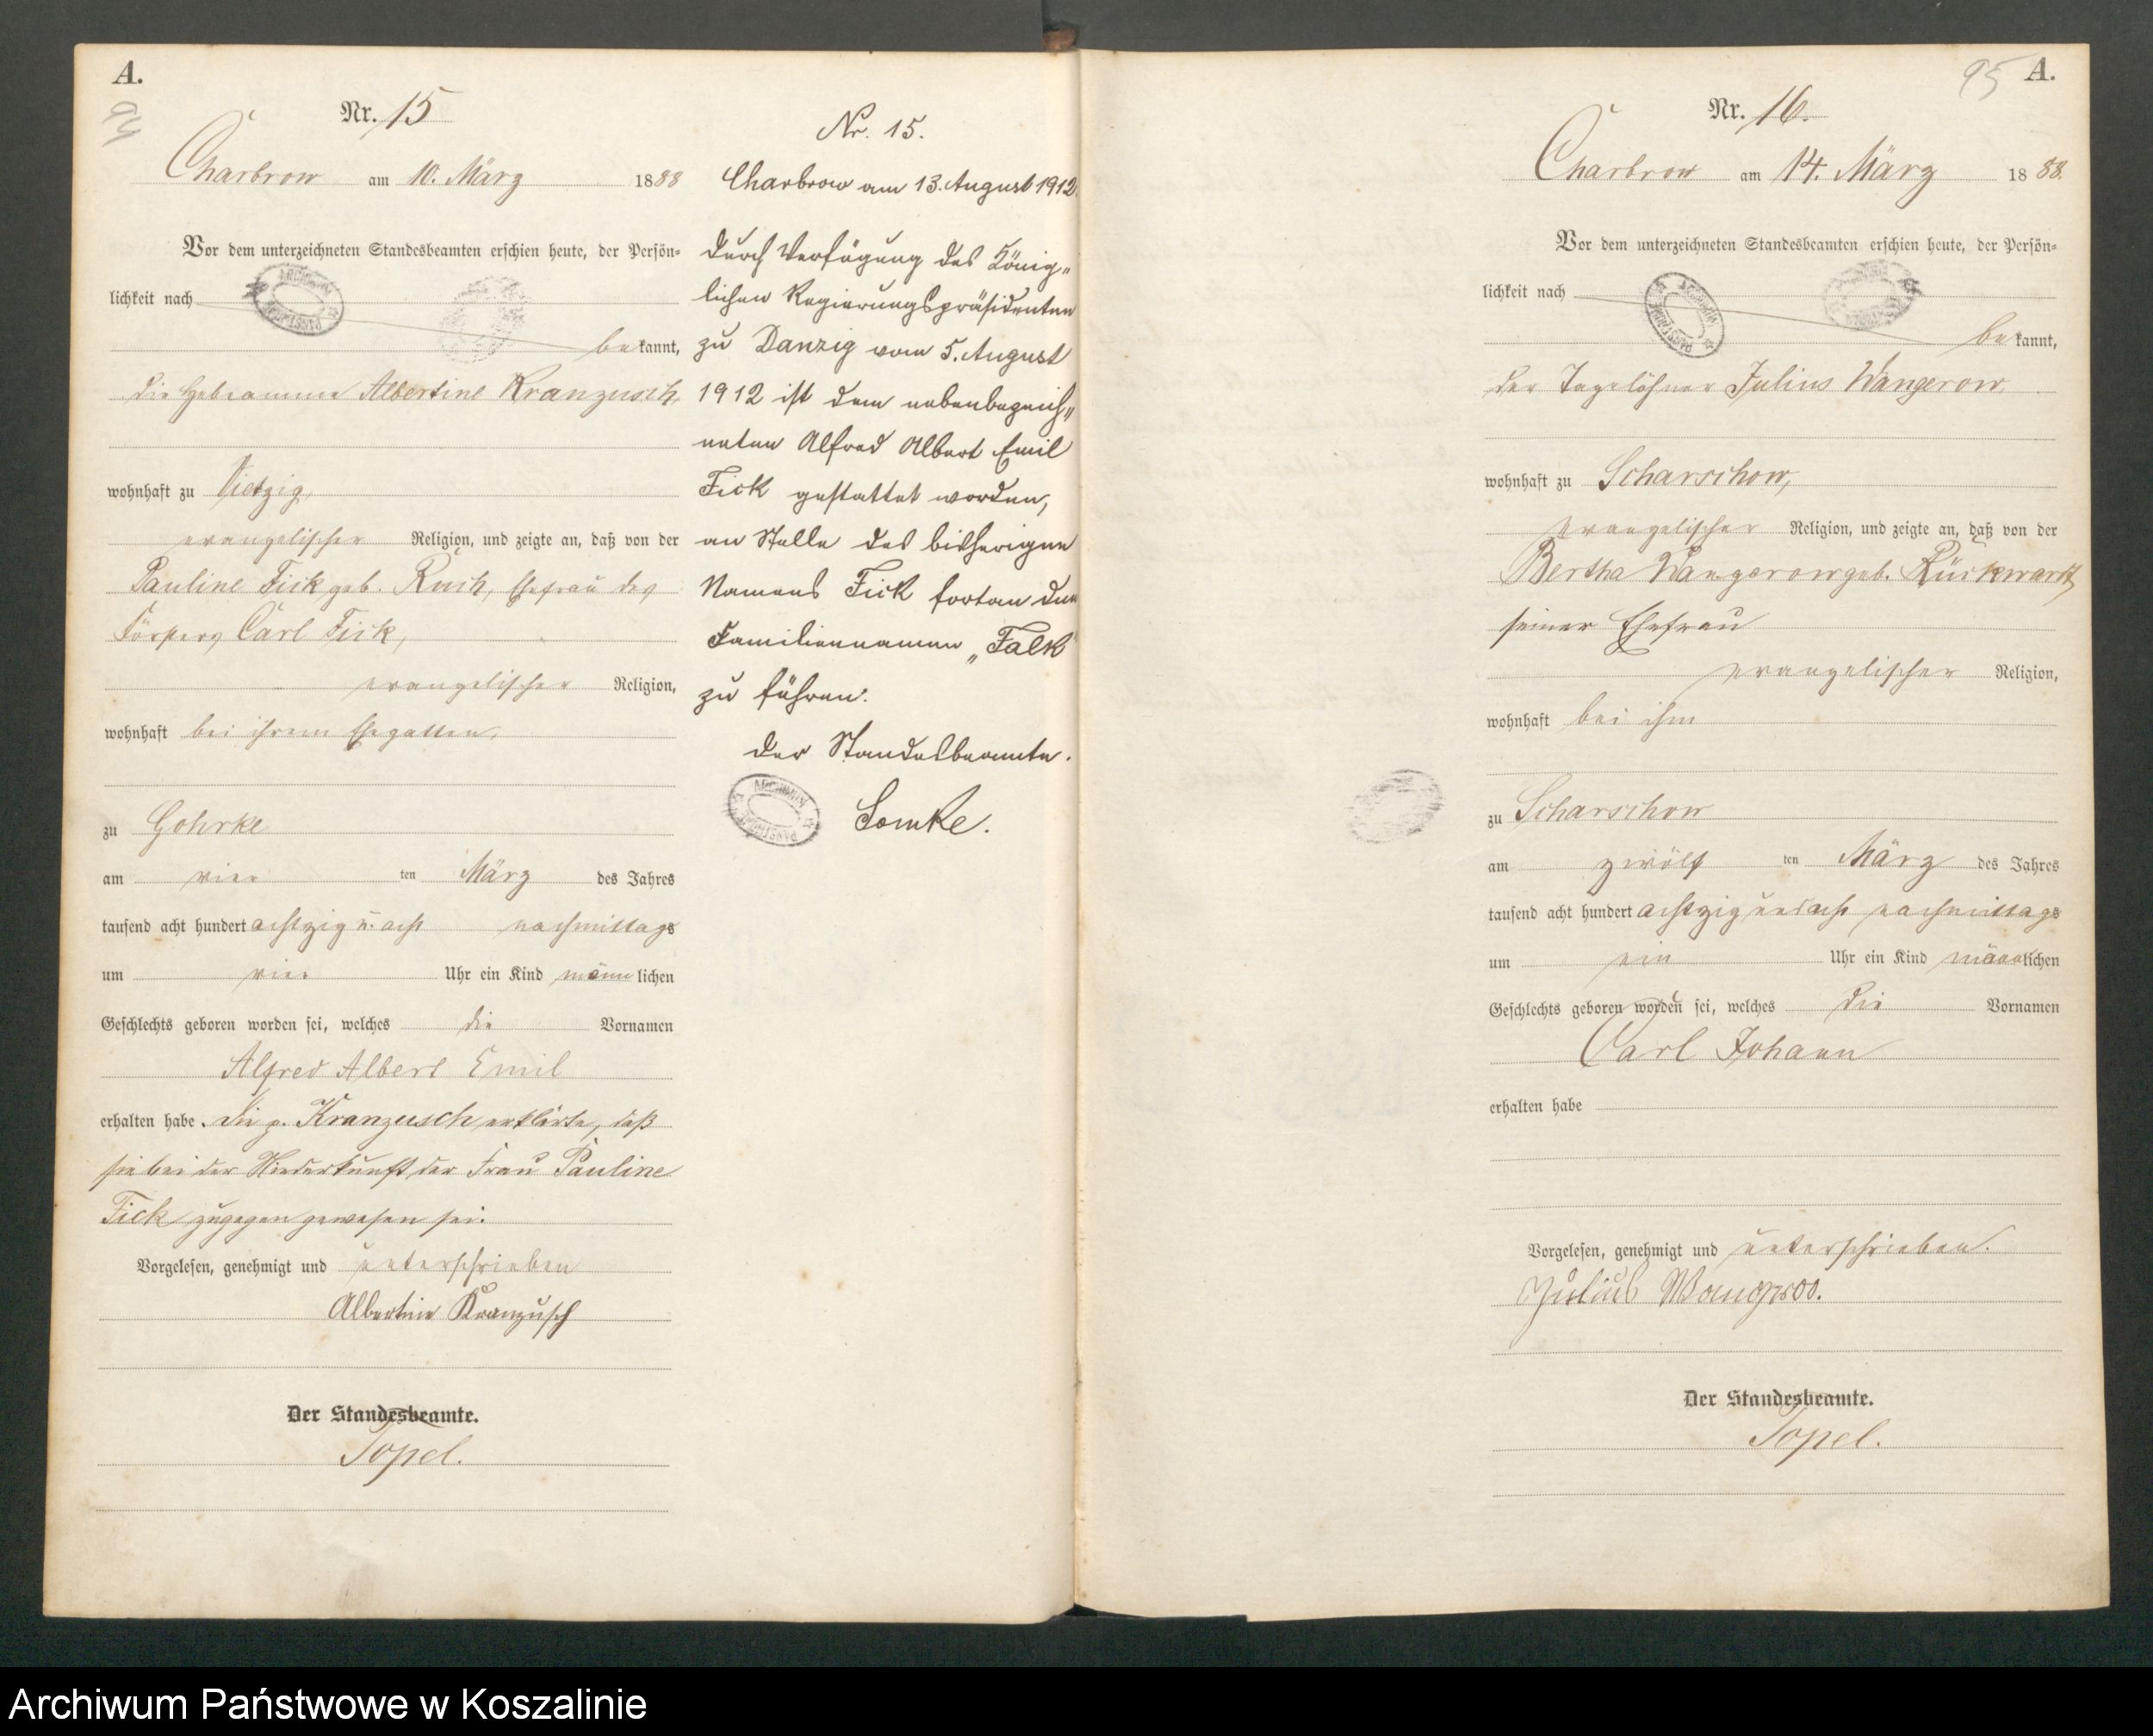 A.
94
Nr. 15
Charbrow am 10. März 1888
Vor dem unterzeichneten Standesbeamten erschien heute, der Persön-
lichkeit nach
bekannt,
die Hebeamme Albertine Kranzusch,
wohnhaft zu Vietzig,
evangelischer Religion, und zeigte an, daß von der
Pauline Fick geb. Ruch, Ehefrau des
Försters Carl Fick,
evangelischer Religion,
wohnhaft bei ihrem Ehegatten,
zu Gohrke
am vier ten März des Jahres
tausend acht hundert achtzig u. acht nachmittags
um vier Uhr ein Kind männlichen
Geschlechts geboren worden sei, welches die Vornamen
Alfred Albert Emil
erhalten habe. Die p. Kranzusch erklärte, daß
sie bei der Niederkunft der Frau Pauline
Fick zugegen gewesen sei.
Vorgelesen, genehmigt und unterschrieben
Albertine Kranzusch
Der Standesbeamte.
Topel.
Nr. 15.
Charbrow am 13. August 1912.
Durch Verfügung des König-
lichen Regierungspräsidenten
zu Danzig vom 5. August
1912 ist dem nebenbezeich-
neten Alfred Albert Emil
Fick gestattet worden,
an Stelle des bisherigen
Namens Fick fortan den
Familiennamen „Falk“
zu führen.
Der Standesbeamte.
Lemke.
95
A.
Nr. 16.
Charbrow am 14. März 1888.
Vor dem unterzeichneten Standesbeamten erschien heute, der Persön-
lichkeit nach
bekannt,
der Tagelöhner Julius Wangerow,
wohnhaft zu Scharschow,
evangelischer Religion, und zeigte an, daß von der
Bertha Wangerow geb. Rückwardt,
seiner Ehefrau
evangelischer Religion,
wohnhaft bei ihm
zu Scharschow
am zwölf ten März des Jahres
tausend acht hundert achtzig und acht nachmittags
um ein Uhr ein Kind männlichen
Geschlechts geboren worden sei, welches die Vornamen
Carl Johann
erhalten habe
Vorgelesen, genehmigt und unterschrieben.
Julius Wangeroo.
Der Standesbeamte.
Topel.
Archiwum Państwowe w Koszalinie